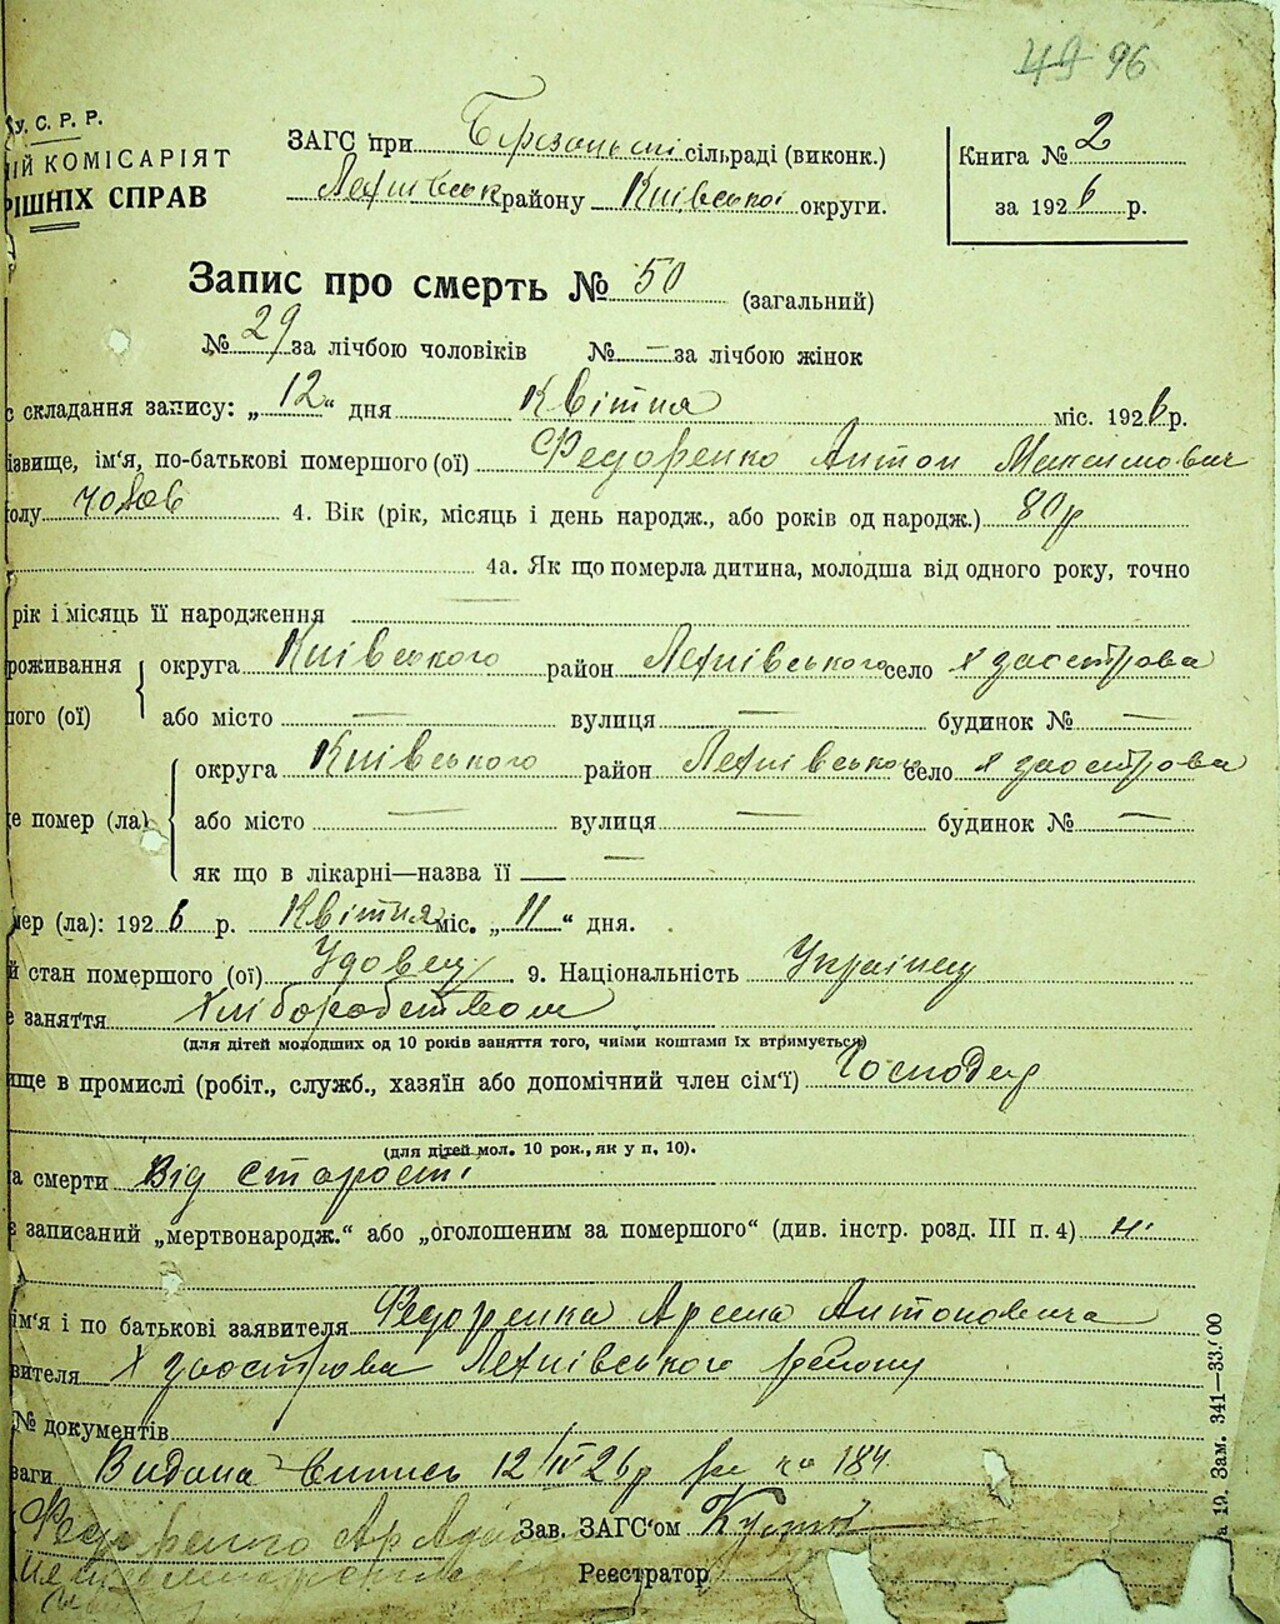 49 96
У. С. Р. Р.
ИЙ КОМІСАРІЯТ
РІШНІХ СПРАВ
ЗАГС при Березанські сільраді (виконк.)
району Київської округи.
Книга № 2
за 1926 р.
Запис про смерть № 50 (загальний)
№ 29 за лічбою чоловіків № — за лічбою жінок
с складання запису: „12“ дня Квітня міс. 1926 р.
ізвище, ім‘я, по-батькові помершого (ої) Федоренко Антон Максимович
олу чолов 4. Вік (рік, місяць і день народж., або років од народж.) 80 р
4а. Як що померла дитина, молодша від одного року, точно
рік і місяць її народження —
роживання округа Київського район село х
ного (ої) або місто — вулиця — будинок № —
округа Київського район село х
е помер (ла) або місто — вулиця — будинок № —
як що в лікарні—назва її —
мер (ла): 1926 р. Квітня міс. „11“ дня.
й стан помершого (ої) Удовец 9. Національність Українец
е заняття Хліборобством
(для дітей молодших од 10 років заняття того, чиїми коштами їх втримується)
ище в промислі (робіт., служб., хазяїн або допомічний член сім‘ї) Господар
(для дітей мол. 10 рок., як у п. 10).
а смерти Від старості
є записаний „мертвонародж.“ або „оголошеним за помершого“ (див. інстр. розд. III п. 4) ні
ім‘я і по батькові заявителя Федоренка Антоновича
вителя Х району
№ документів
ваги Видана Випись 12/IV 26 р 184
Федоренко
Зав. ЗАГС‘ом
Реєстратор
19. Зам. 341—33.000